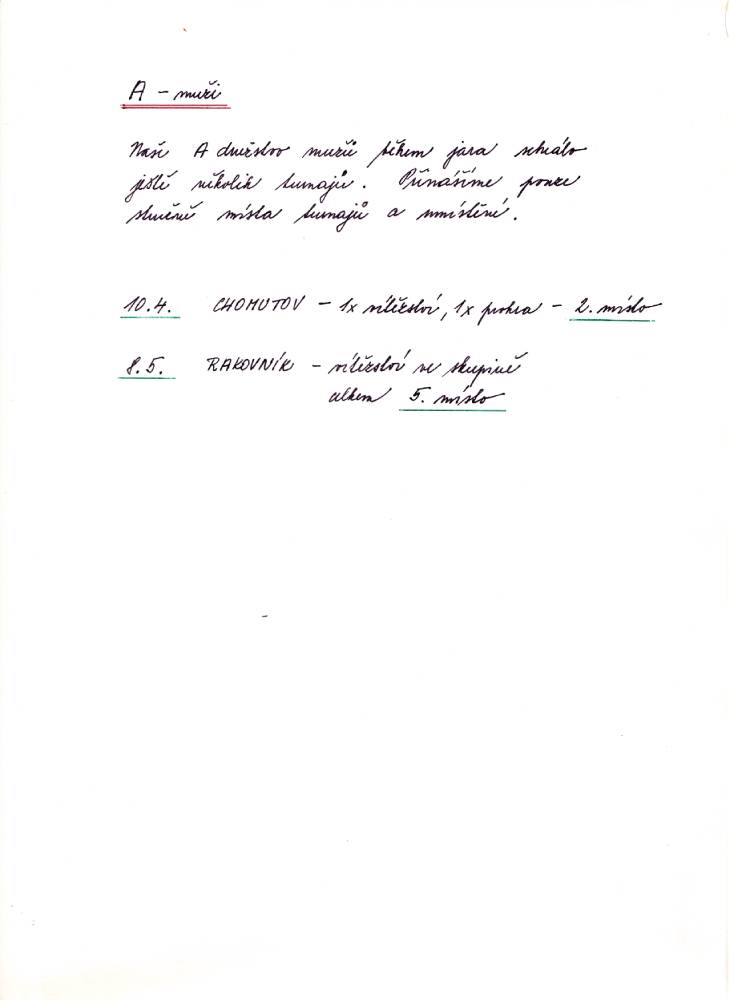 A - muži
Naše A družstvo mužů během jara sehrálo
ještě několik turnajů. Přinášíme pouze
stručně místa turnajů a umístění.
10.4. CHOMUTOV - 1x vítězství, 1x prohra - 2. místo
8.5. RAKOVNÍK - vítězství ve skupině
celkem 5. místo